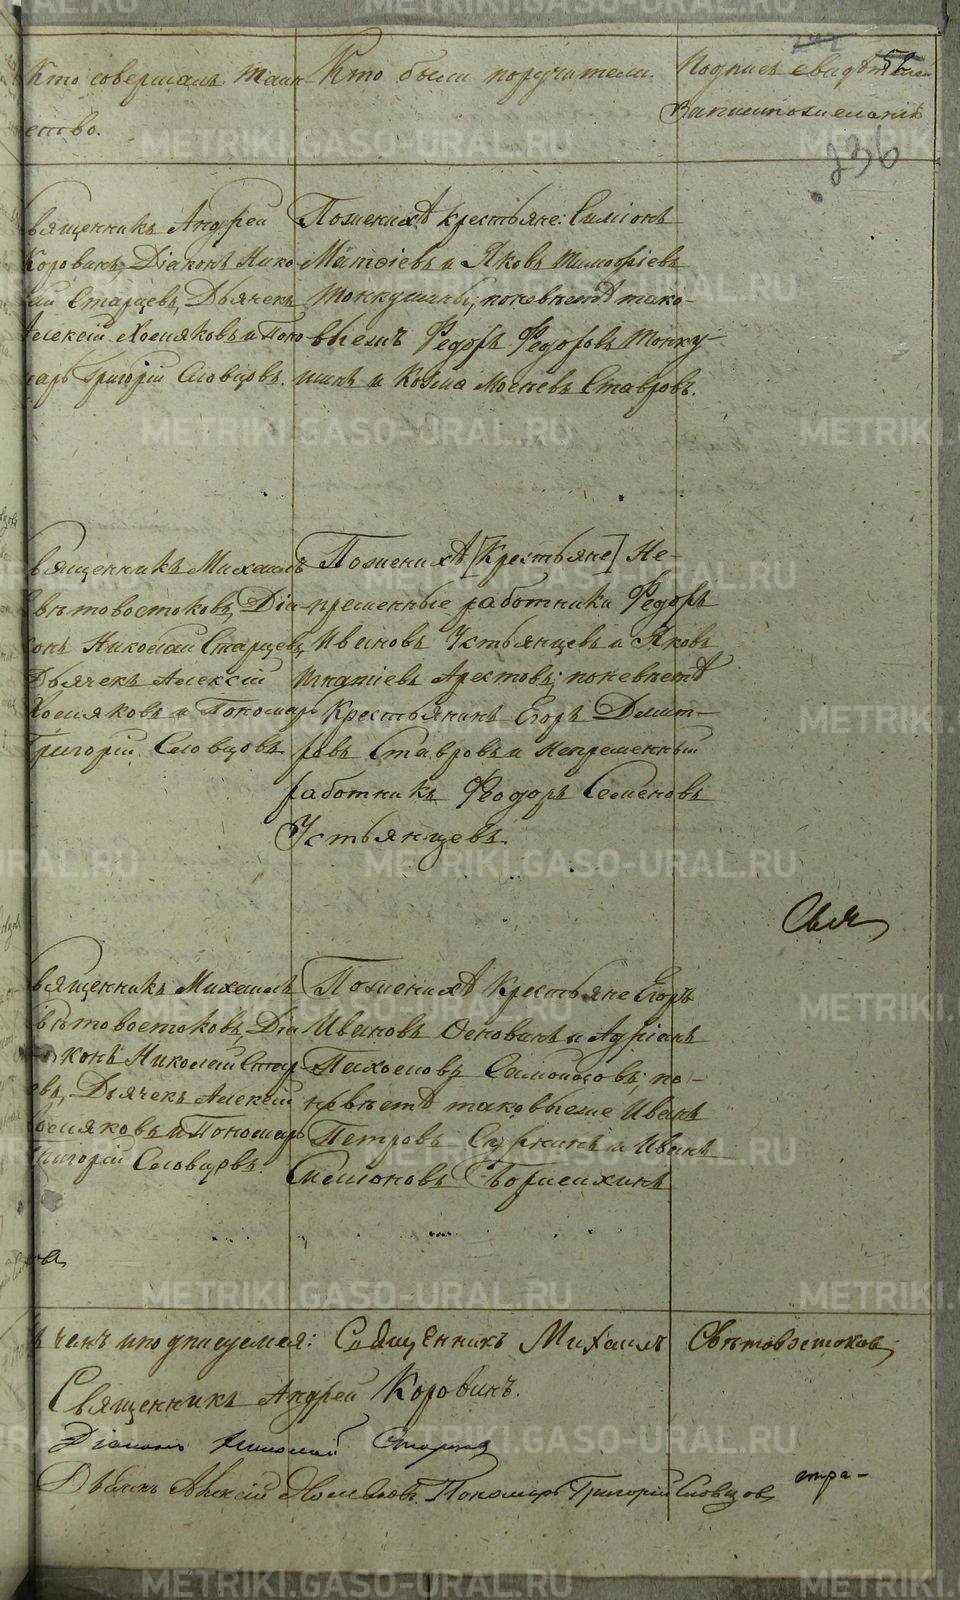 Кто совершалъ таин
ство.
Кто были поручители.
Подпись свидѣтелей
записи по желанію
56
236
вященникъ Андрей
Коровинъ, Діаконъ Нико
лай Старцевъ, Дьячекъ
Алексій Хомяковъ и Поно
марь Григорій Словцовъ.
По женихѣ крестьяне: Симіонъ
Матѳіевъ и Яковъ Тимофіевъ
по невѣстѣ тако-
выежъ Федоръ Федоровъ
и Козма Ставровъ.
вященникъ Михаилъ
вѣтовостоковъ, Діа
конъ Николай Старцевъ,
Дьячекъ Алексій
Хомяковъ и Пономарь
Григорій Словцовъ.
По женихѣ [Крестьяне] Не-
пременные работники Федоръ
Ивановъ Устьянцевъ и Яковъ
Игнатіевъ Арестовъ; по невѣстѣ
Крестьянинъ Егоръ Дмит-
ровъ Ставровъ и Непременный
работникъ Феодоръ Семеновъ
Устьянцевъ.
Свя
вященникъ Михаилъ
вѣтовостоковъ, Діа
конъ Николай Стар
евъ, Дьячекъ Алексій
Хомяковъ и Пономарь
Григорій Словцовъ.
По женихѣ Крестьяне Егоръ
Ивановъ Основинъ и Адріанъ
Пахомовъ Самойловъ; по-
невѣстѣ таковыеже Иванъ
Петровъ и Иванъ
Симіоновъ Борисихинъ
чемъ и подписуемся: Священникъ Михаилъ Свѣтовостоковъ
Священникъ Андрей Коровинъ.
Діаконъ Николай Старцевъ
Дьячекъ Алексій Хомяковъ. Пономарь Григорій Словцовъ
METRIKI.GASO-URAL.RU